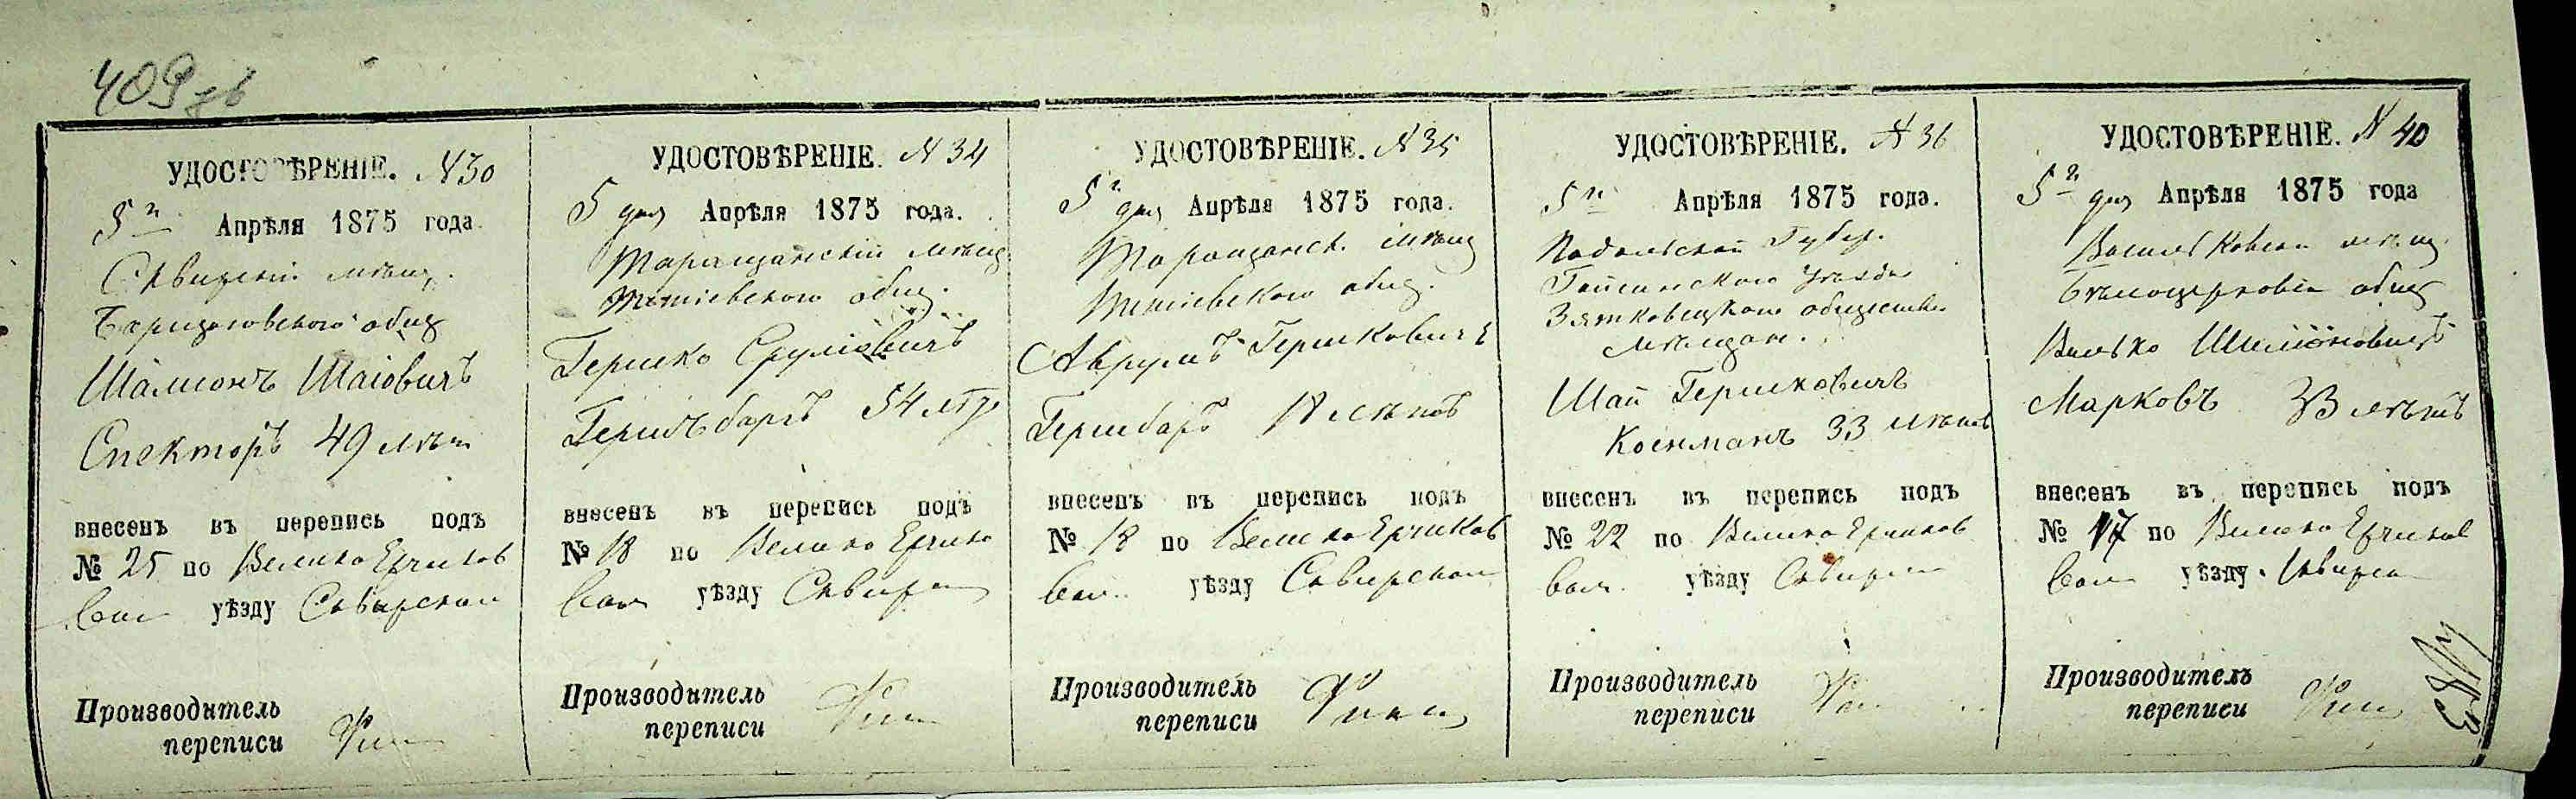 409
УДОСТОВѢРЕНІЕ. N 30
5 Апрѣля 1875 года.
Сквирскій мѣщ.
общ
Шаліонъ Шаіовичъ
Спекторъ 49 лѣт
внесенъ въ перепись подъ
№ 25 по Велико Ерчиков
Вол уѣзду Сквирском
Производитель
переписи
УДОСТОВѢРЕНІЕ. N 34
5 дня Апрѣля 1875 года.
Таращанскій мѣщ
Тетіевского общ.
Гершко Сруліовичъ
Гершъбаргъ 54 лѣт
внесенъ въ перепись подъ
№ 18 по Велико Ерчико
Вол уѣзду Сквирс
Производитель
переписи
УДОСТОВѢРЕНІЕ. N 35
5 дня Апрѣля 1875 года.
Таращанск. мѣщ
Тетіевского общ.
Аврумъ Гершковичъ
лѣтъ
внесенъ въ перепись подъ
№ 18 по Велико Ерчиков
Вол. уѣзду Сквирском
Производитель
переписи
УДОСТОВѢРЕНІЕ. N 36
5 Апрѣля 1875 года.
Подольской Губер.
Гайсинского Уѣзда
Зятковецкого общества
мѣщан.
Шая Гершковичъ
33 лѣтъ
внесенъ въ перепись подъ
№ 22 по Велико Ерчиков
Вол. уѣзду Сквирс
Производитель
переписи
УДОСТОВѢРЕНІЕ. N 40
5 дня Апрѣля 1875 года
Васильковскій мѣщ.
Бѣлоцерковск общ
Велько Шиліоновичъ
Марковъ 33 лѣтъ
внесенъ въ перепись подъ
№ 17 по Велико Ерчиков
Вол уѣзду Сквирск
Производитель
переписи